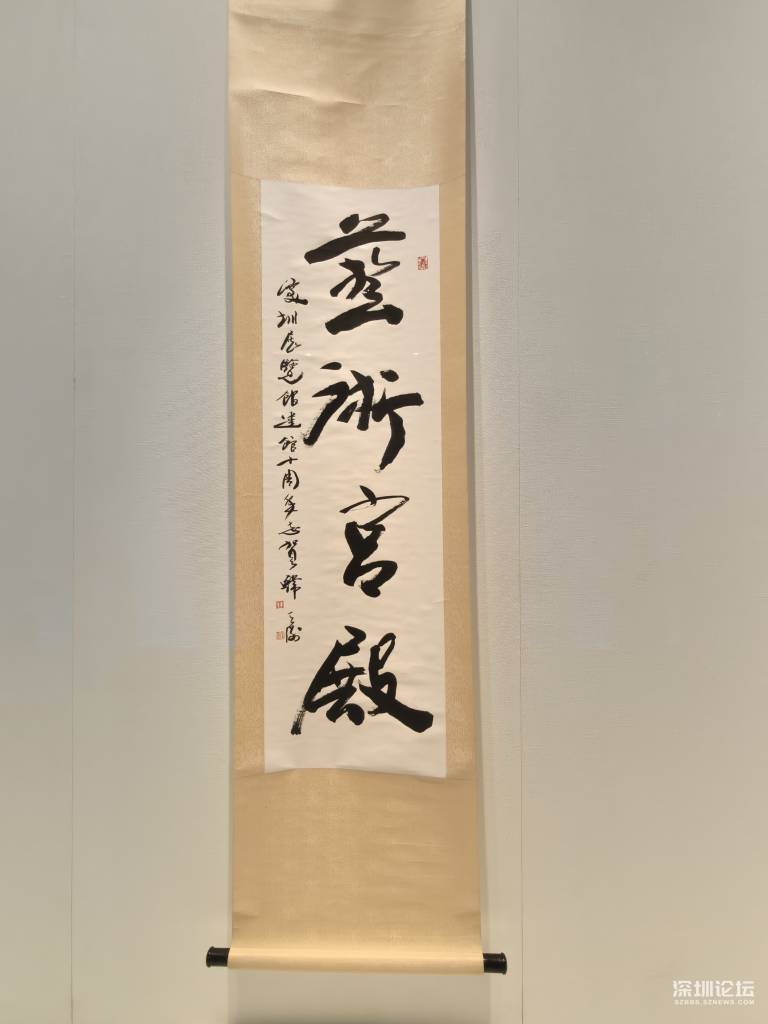 藝術宮殿
深圳展覽館建館十周年志賀
深圳论坛
SZBBS.SZNEWS.COM